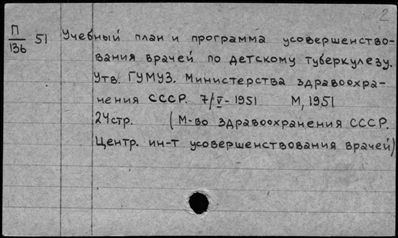 2
П/136 51 Учебный план и программа усовершенство-
вания врачей по детскому туберкулезу.
Утв. ГУМУЗ. Министерства здравоохра-
нения СССР. 7/V-1951 М, 1951
24стр. (М-во здравоохранения СССР.
Центр. ин-т усовершенствования врачей)